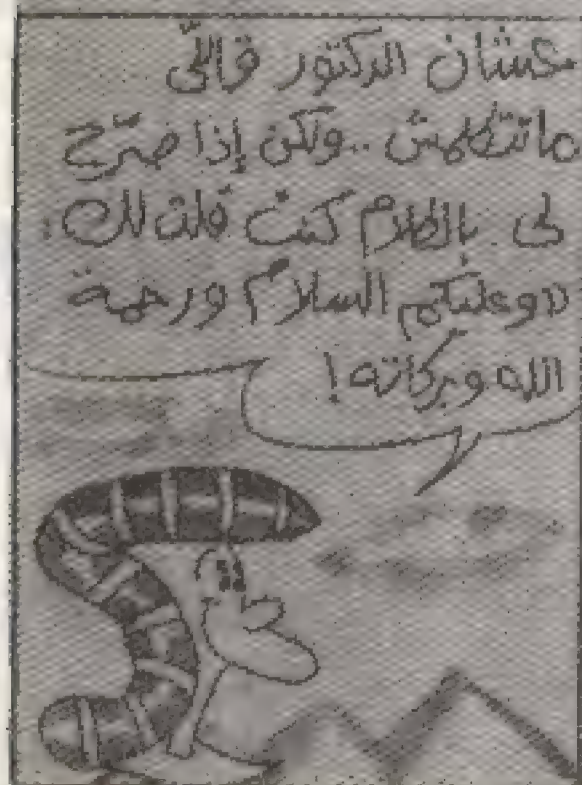 عشان الدكتور قاللّى
ماتتكلمش .. ولكن إذا صرّح
لى بالكلام كنت قلت لك :
«وعليكم السلام ورحمة
الله وبركاته !